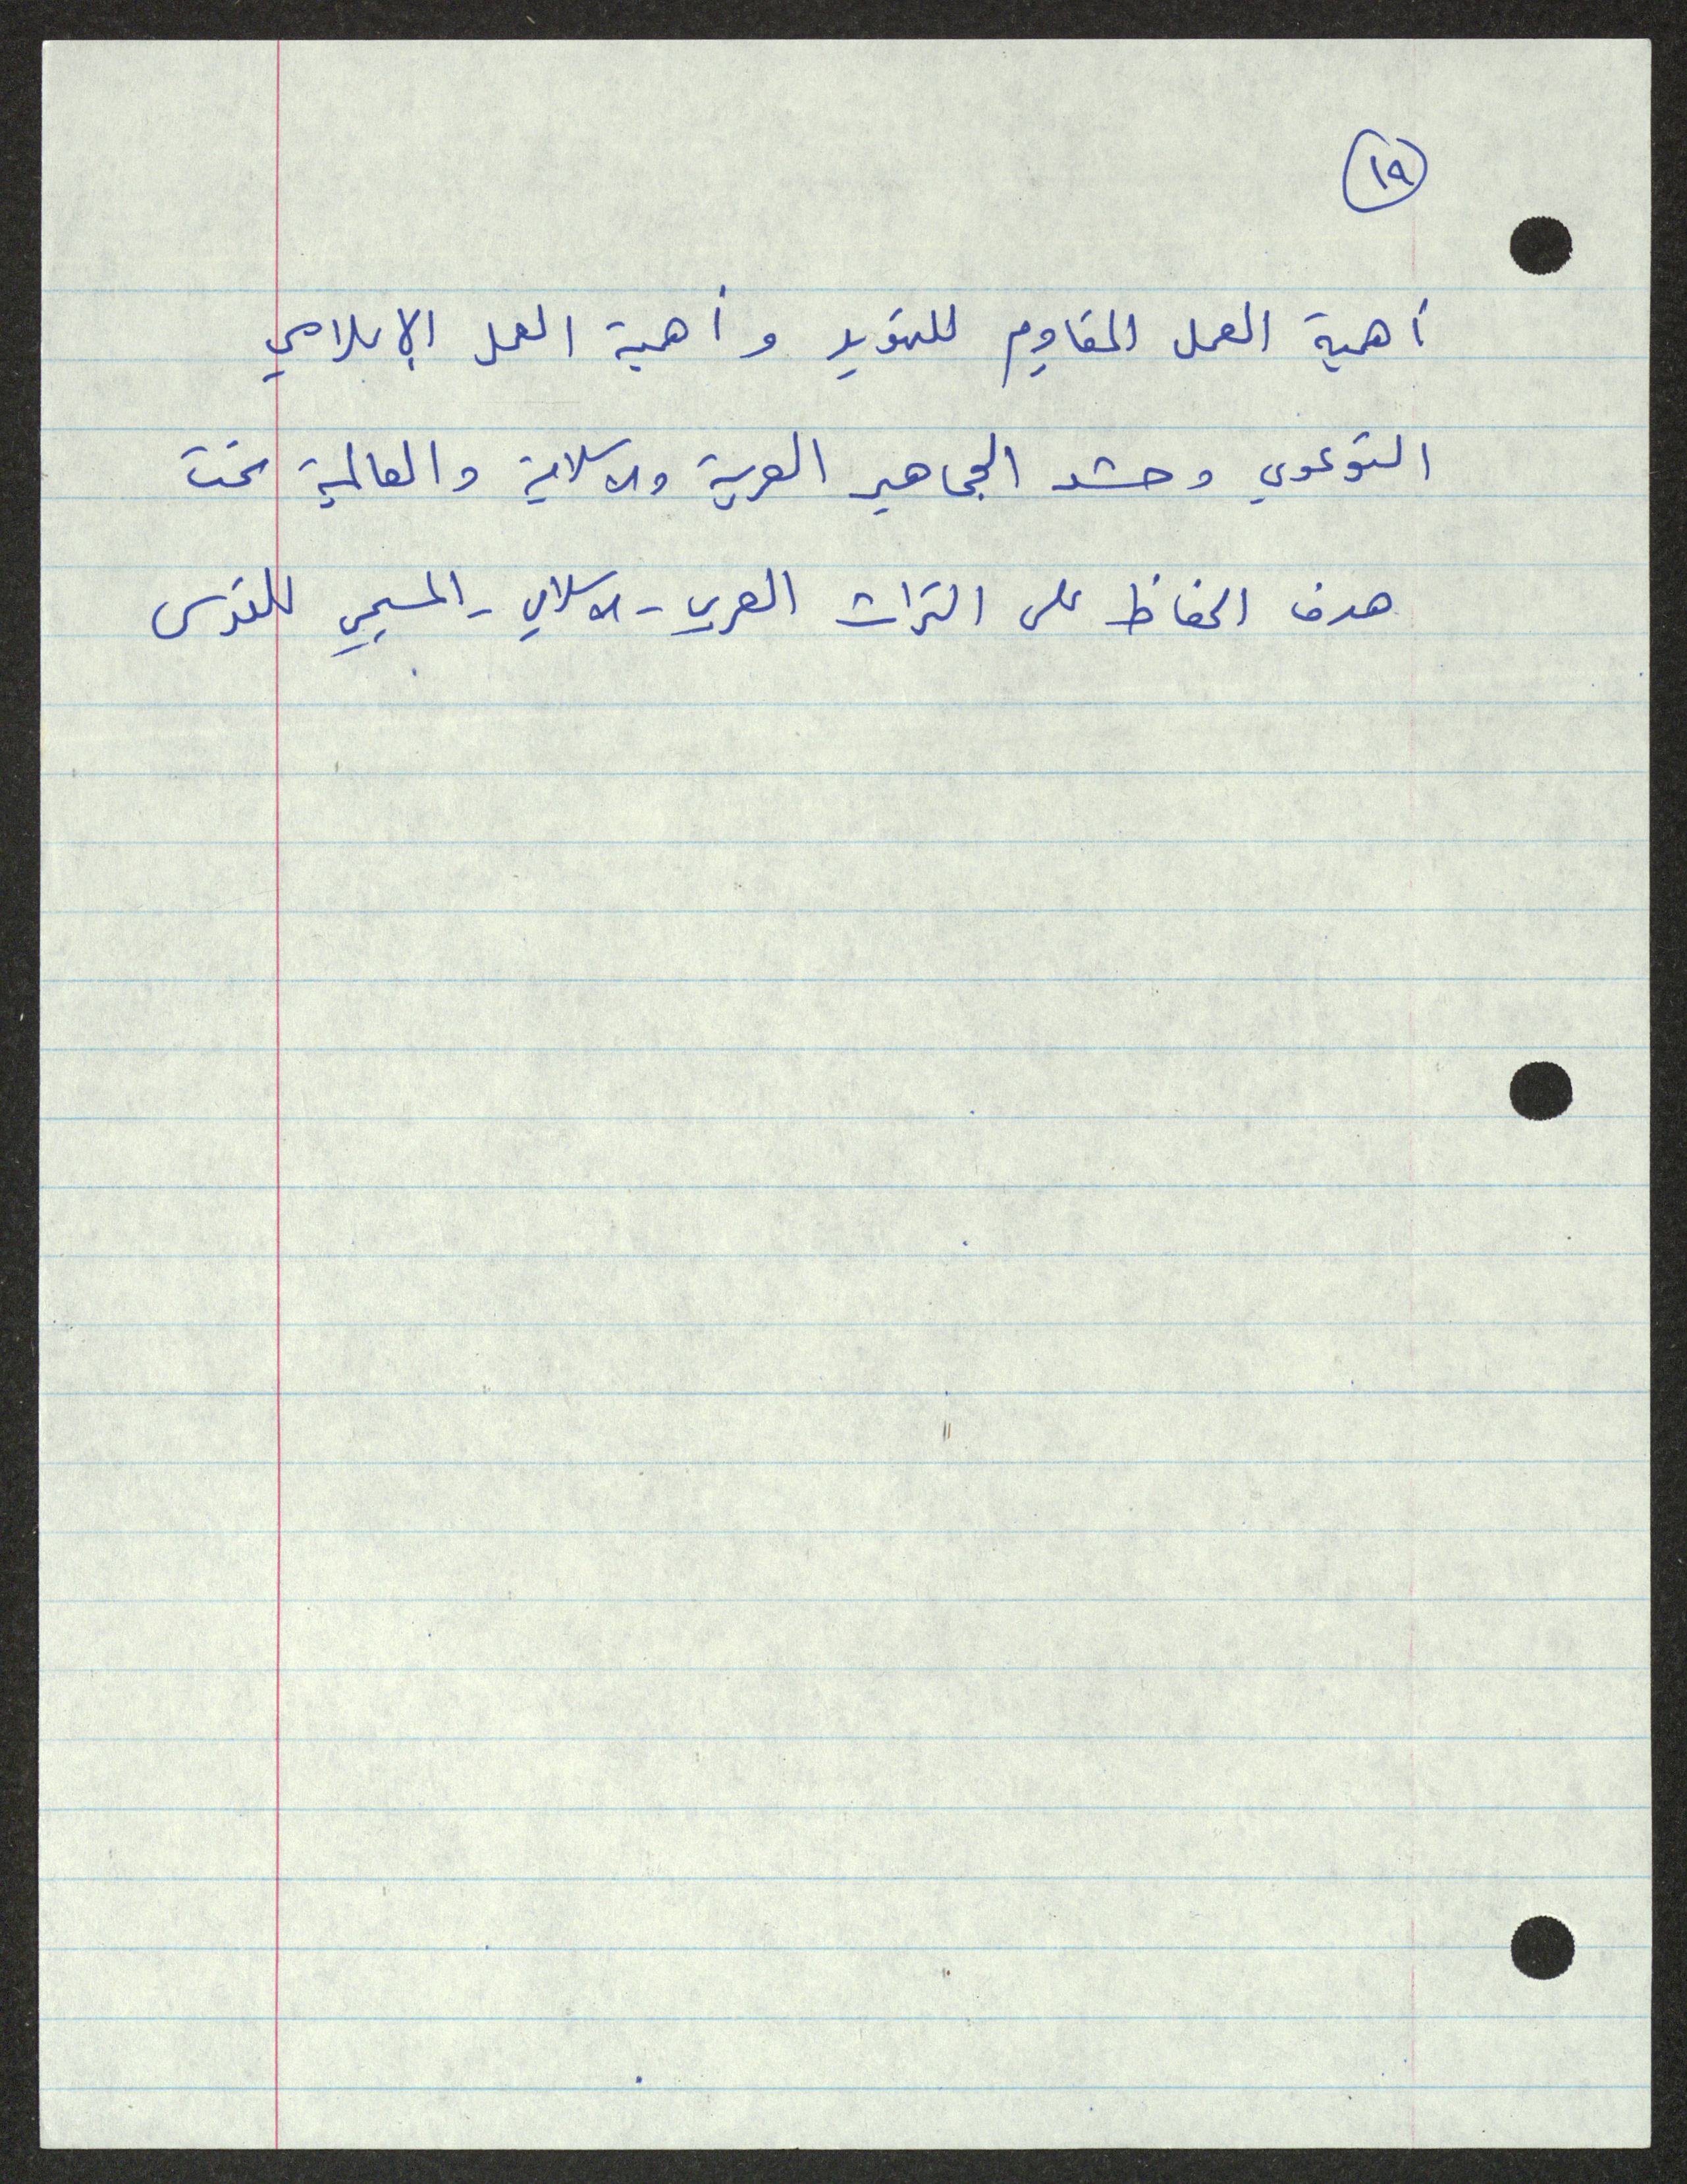 ١٩
أهمية العمل المقاوم للتهويد وأهمية العمل الإعلامي
التوعوي وحشد الجماهير العربية والاسلامية والعالمية تحت
هدف الحفاظ على التراث العربي - الاسلامي - المسيحي للقدس